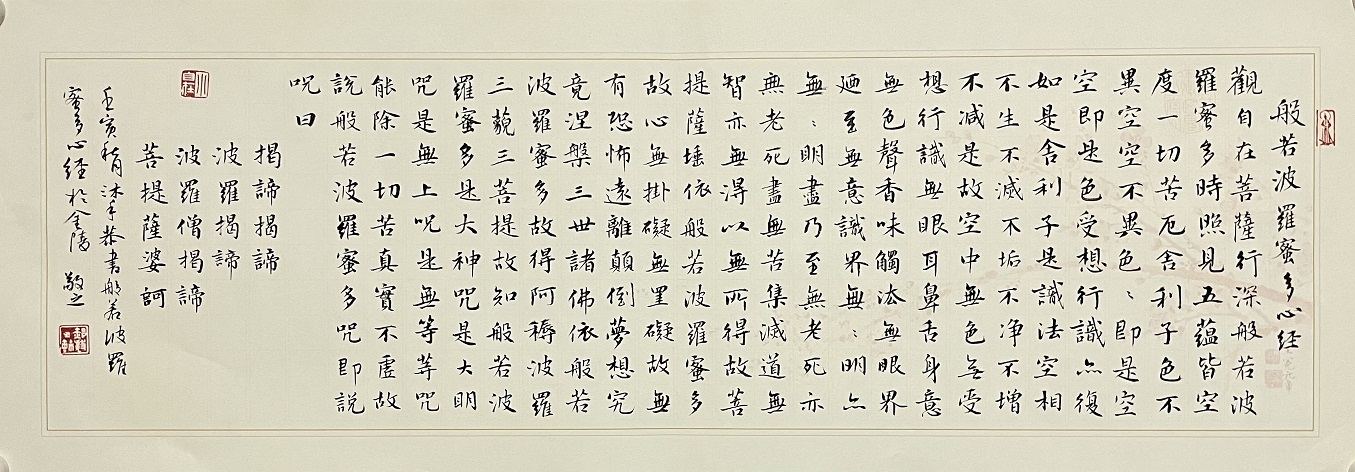 般若波羅蜜多心経
觀自在菩薩行深般若波
羅蜜多時照見五蘊皆空
度一切苦厄舍利子色不
異空空不異色〻即是空
空即是色受想行識亦復
如是舍利子是諸法空相
不生不滅不垢不净不增
不减是故空中無色無受
想行識無眼耳鼻舌身意
無色聲香味觸法無眼界
廼至無意識界無〻明亦
無〻明盡乃至無老死亦
無老死盡無苦集滅道無
智亦無得以無所得故菩
提薩埵依般若波羅蜜多
故心無掛礙無罣礙故無
有恐怖遠離顛倒夢想究
竟涅槃三世諸佛依般若
波羅蜜多故得阿耨波羅
三藐三菩提故知般若波
羅蜜多是大神咒是大明
咒是無上咒是無等等咒
能除一切苦真實不虛故
說般若波羅蜜多咒即說
咒曰
揭諦揭諦
波羅揭諦
波羅僧揭諦
菩提薩婆訶
壬寅沐手恭書般若波羅
蜜多心経於金陵 敬之